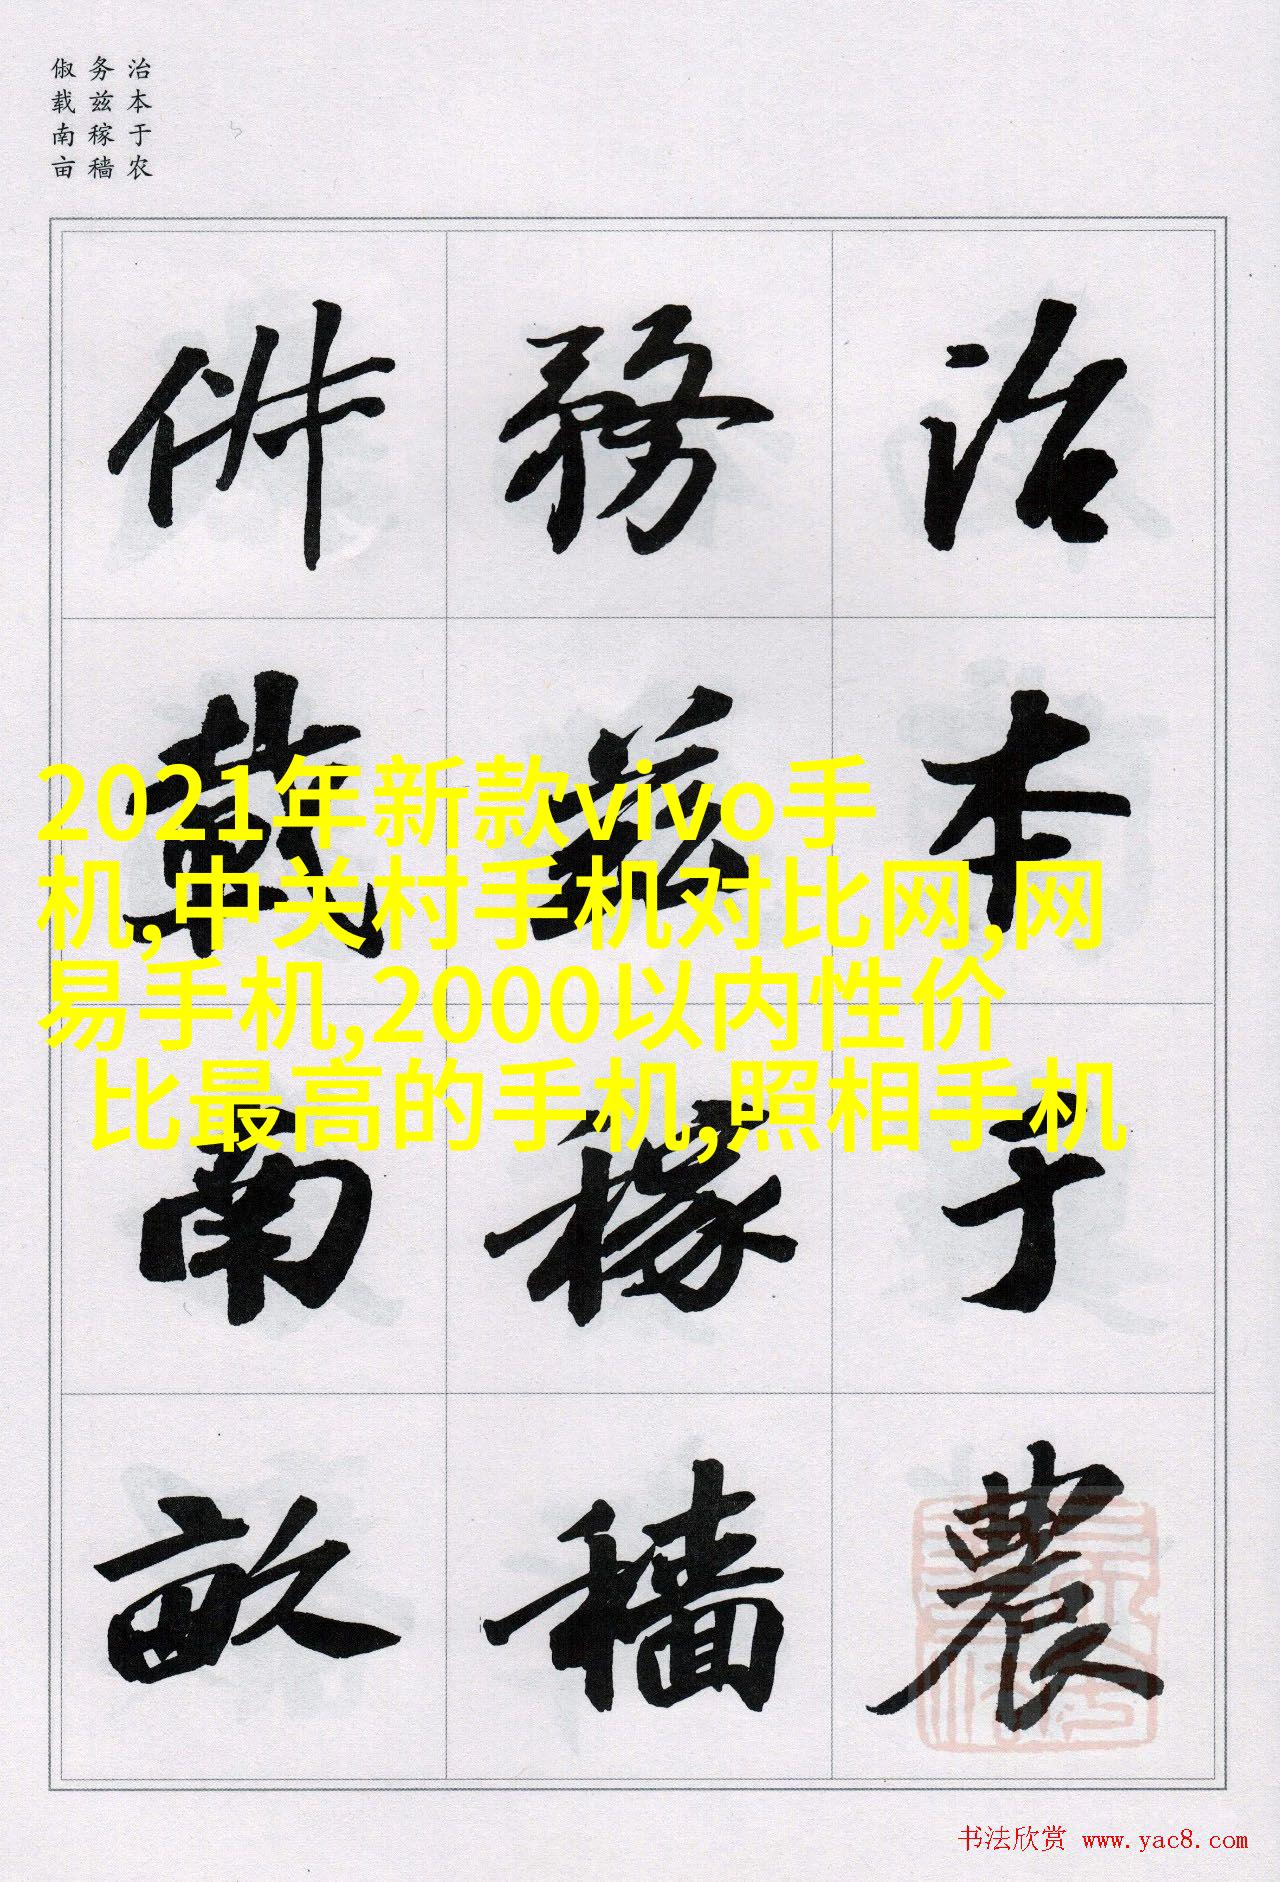 治本于农
务兹稼穑
俶载南亩
治本于農
務兹稼穡
俶載南畝
2021年新款vivo手
机,中关村手机对比网,网
易手机,2000以内性价
比最高的手机,照相手机
书法欣赏 www.yac8.com